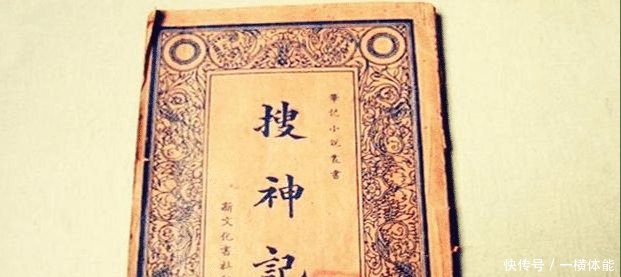 筆記小說叢書
搜神記
新文化書社
快传号／一横体能